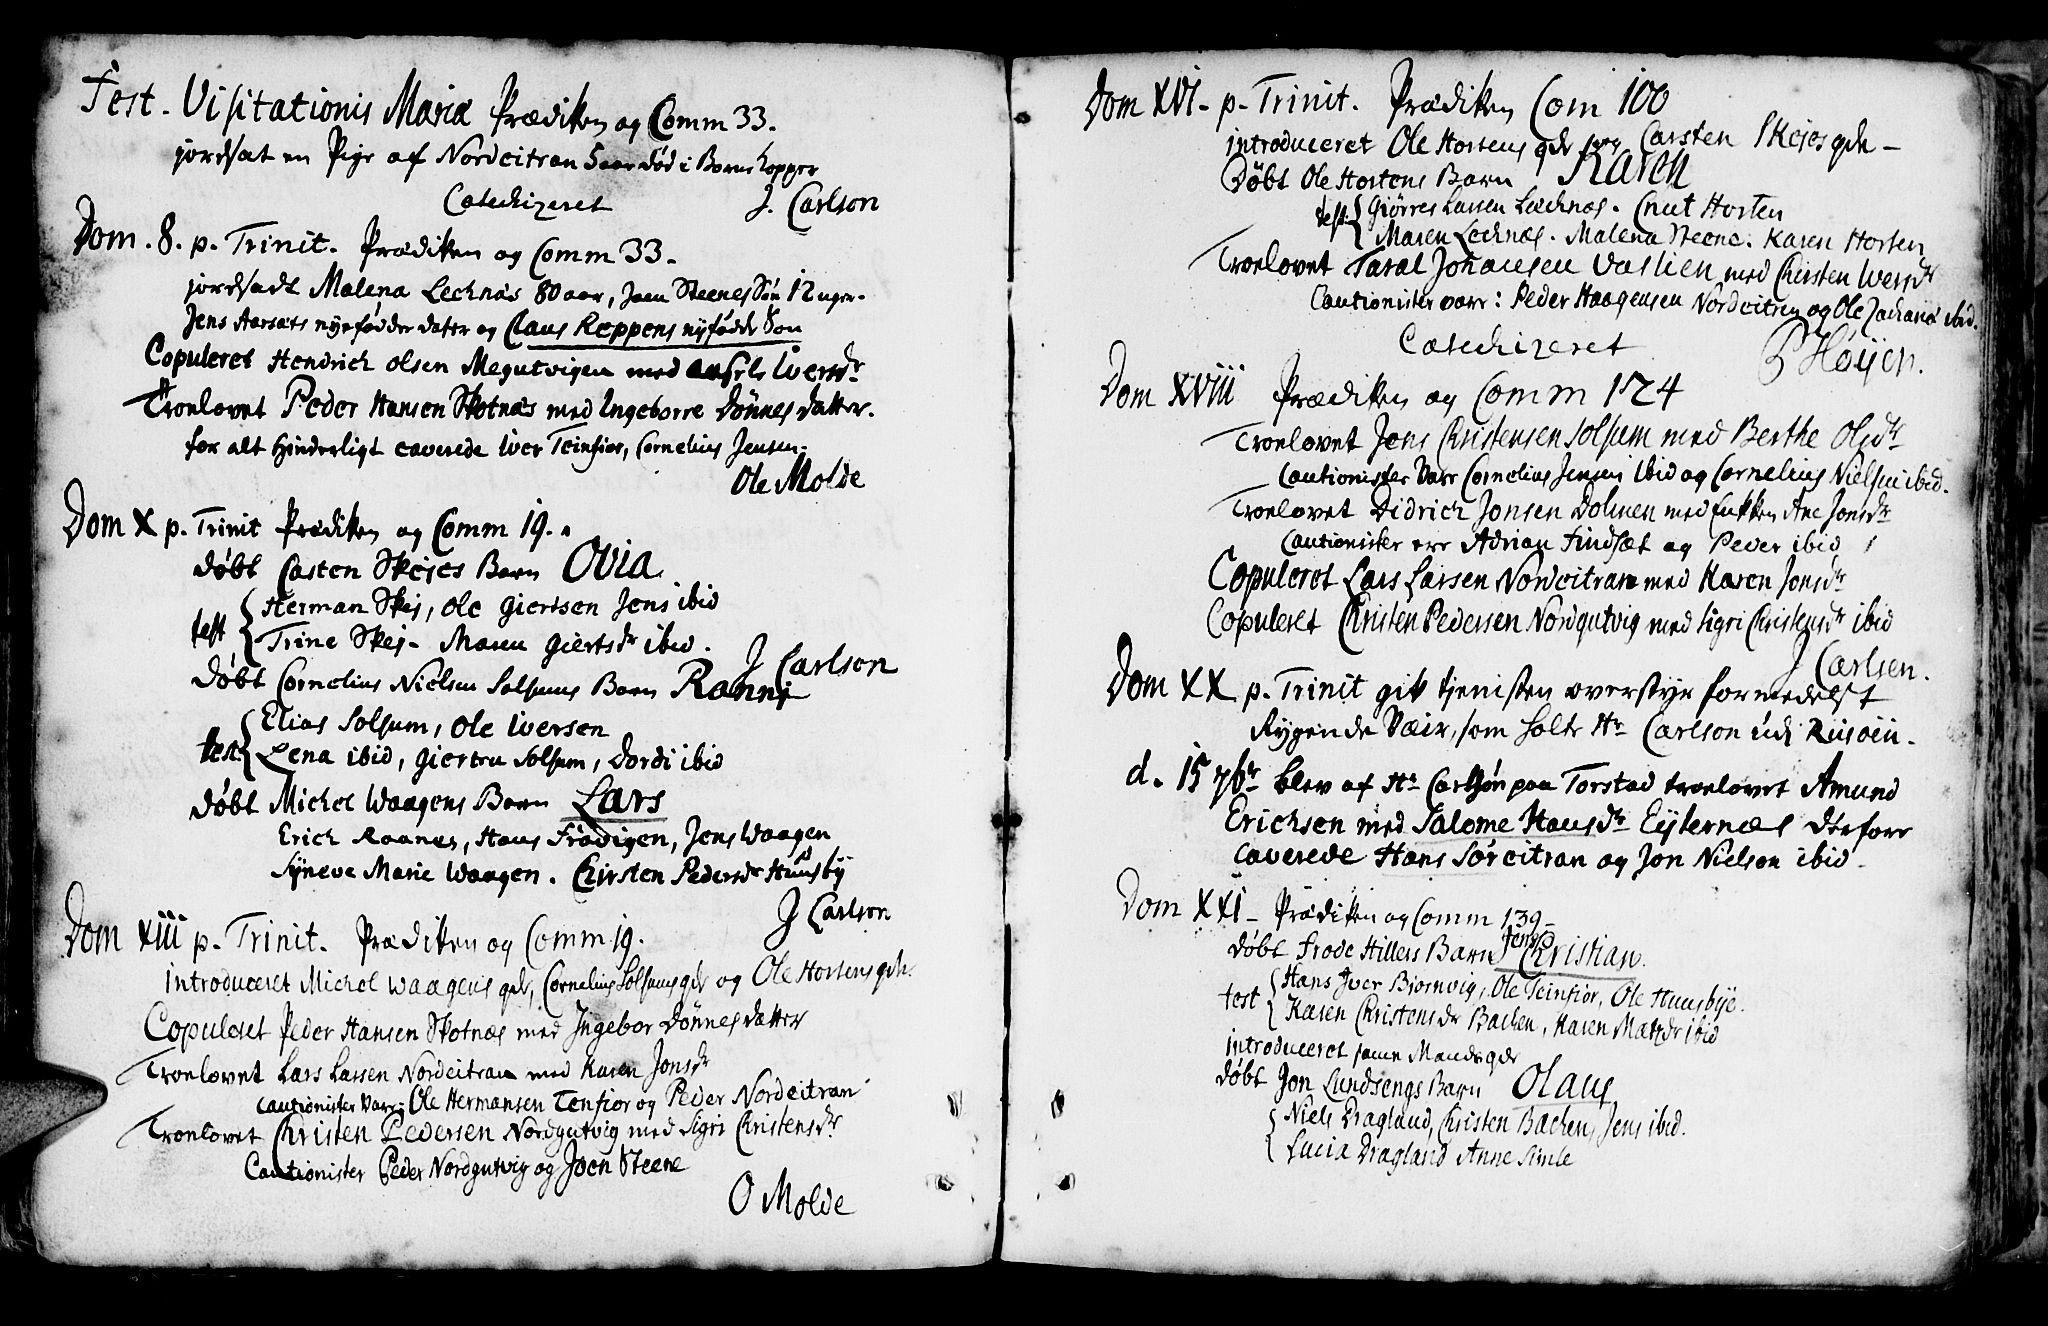 Fest. Visitationis Mariæ Prædiken og Comm 33.
jordsat en Pige af Nordeitran 5 aar død i Børne Kopper
Catechizeret J. Carlson
Dom. 8. p. Trinit. Prædiken og Comm 33.
jordsadt Malena Lechnæs 80 aar, Joen Steenes Søn 12 uger.
Jens Aarsæts nyefødde dater og Claus Reppens nyfødde Son
Copuleret Hendrich Olsen Megutvigen med Iversdr
Troelovet Peder Hansen Skotnæs med Ingeborre Dønnes datter.
for alt hinderligt caverede Iver Teinfior, Cornelius Jensen.
Ole Molde
Dom X p. Trinit Prædiken og Comm 19.
døbt Casten Skejes Barn Ovia
test Herman Skej, Ole Giertsen Jens ibid
Trine Skej. Maren Giertsdr ibid.
J Carlson
Døbt Cornelius Nielsen Solsums Barn Ranni
test Elias Solsum, Ole Iversen
Lena ibid, Giertru Solsum, Dordi ibid
døbt Michel Waagens Barn Lars
Erich Raanes, Hans Frødigen, Jens Waagen
Syneve Marie Waagen. Chirsten Pedersdr Huusby
J Carlson
Dom XIII p. Trinit. Prædiken og Comm 19.
introduceret Michel Waagens qde, Cornelius Solsums qde og Ole Hortens qde.
Copuleret Peder Hansen Skotnæs med Ingebor Dønnes datter
Troelovet Lars Larsen Nordeitran med Karen Jonsdr
Cautionister Varr: Ole Hermansen Tenfior og Peder Nordeitran
Troelovet Christen Pedersen Nordgutvig med Sigri Christensdr
Cautionister Peder Nordgutvig og Joen Steene
O Molde
Dom XVI. p. Trinit. Prædiken Com 100
introduceret Ole Hortens qde og Carsten Skejes qde
Døbt Ole Hortens Barn Karen
test Giørres Larsen Lechnæs. Cnut Horten
Maren Lechnæs. Malena Steene. Karen Horten
Troelovet Taral Johansen Vaslien med Chirsten Iversdr
Cautionister varr: Peder Haagensen Nordeitren og Ole Zachariæ ibid.
Catechizeret P Høyen.
Dom XVIII Prædiken og Comm 124
Troelovet Jens Christensen Solsum med Berthe Olsdr
Cautionister Varr Cornelius Jensen ibid og Cornelius Nielsen ibid.
Troelovet Didrich Jonsen Dolmen med Enkken Ane Jonsdr
Cautionister err Adrian Findsæt og Peder ibid
Copuleret Lars Larsen Nordeitran med Karen Jonsdr
Copuleret Christen Pedersen Nordgutvig med Sigri Christensdr ibid
J Carlsen.
Dom XX p. Trinit gik tjenisten overstyr formedelst
Rygende Væir, som holte Hr Carlson udi Riisøen.
d. 15 7br blev af Hr Carlson paa Torstad troelovet Amund
Erichsen med Salome Hansdr Eyternæs derforr
caverede Hans Søreitran og Jon Nielson ibid.
Dom XXI. Prædiken og Comm 139.
døbt Frode Hillers Barn Jens Christian.
test Hans Iver Biornvig, Ole Teinfior, Ole Huusbye.
Karen Christensdr Bachen, Karen Matzdr ibid
introduceret samme Mands qde
døbt Jon Lundsengs Barn Olaus
Niels Dragland, Christen Bachen Jens ibid.
Lucia Dragland Anne Simle